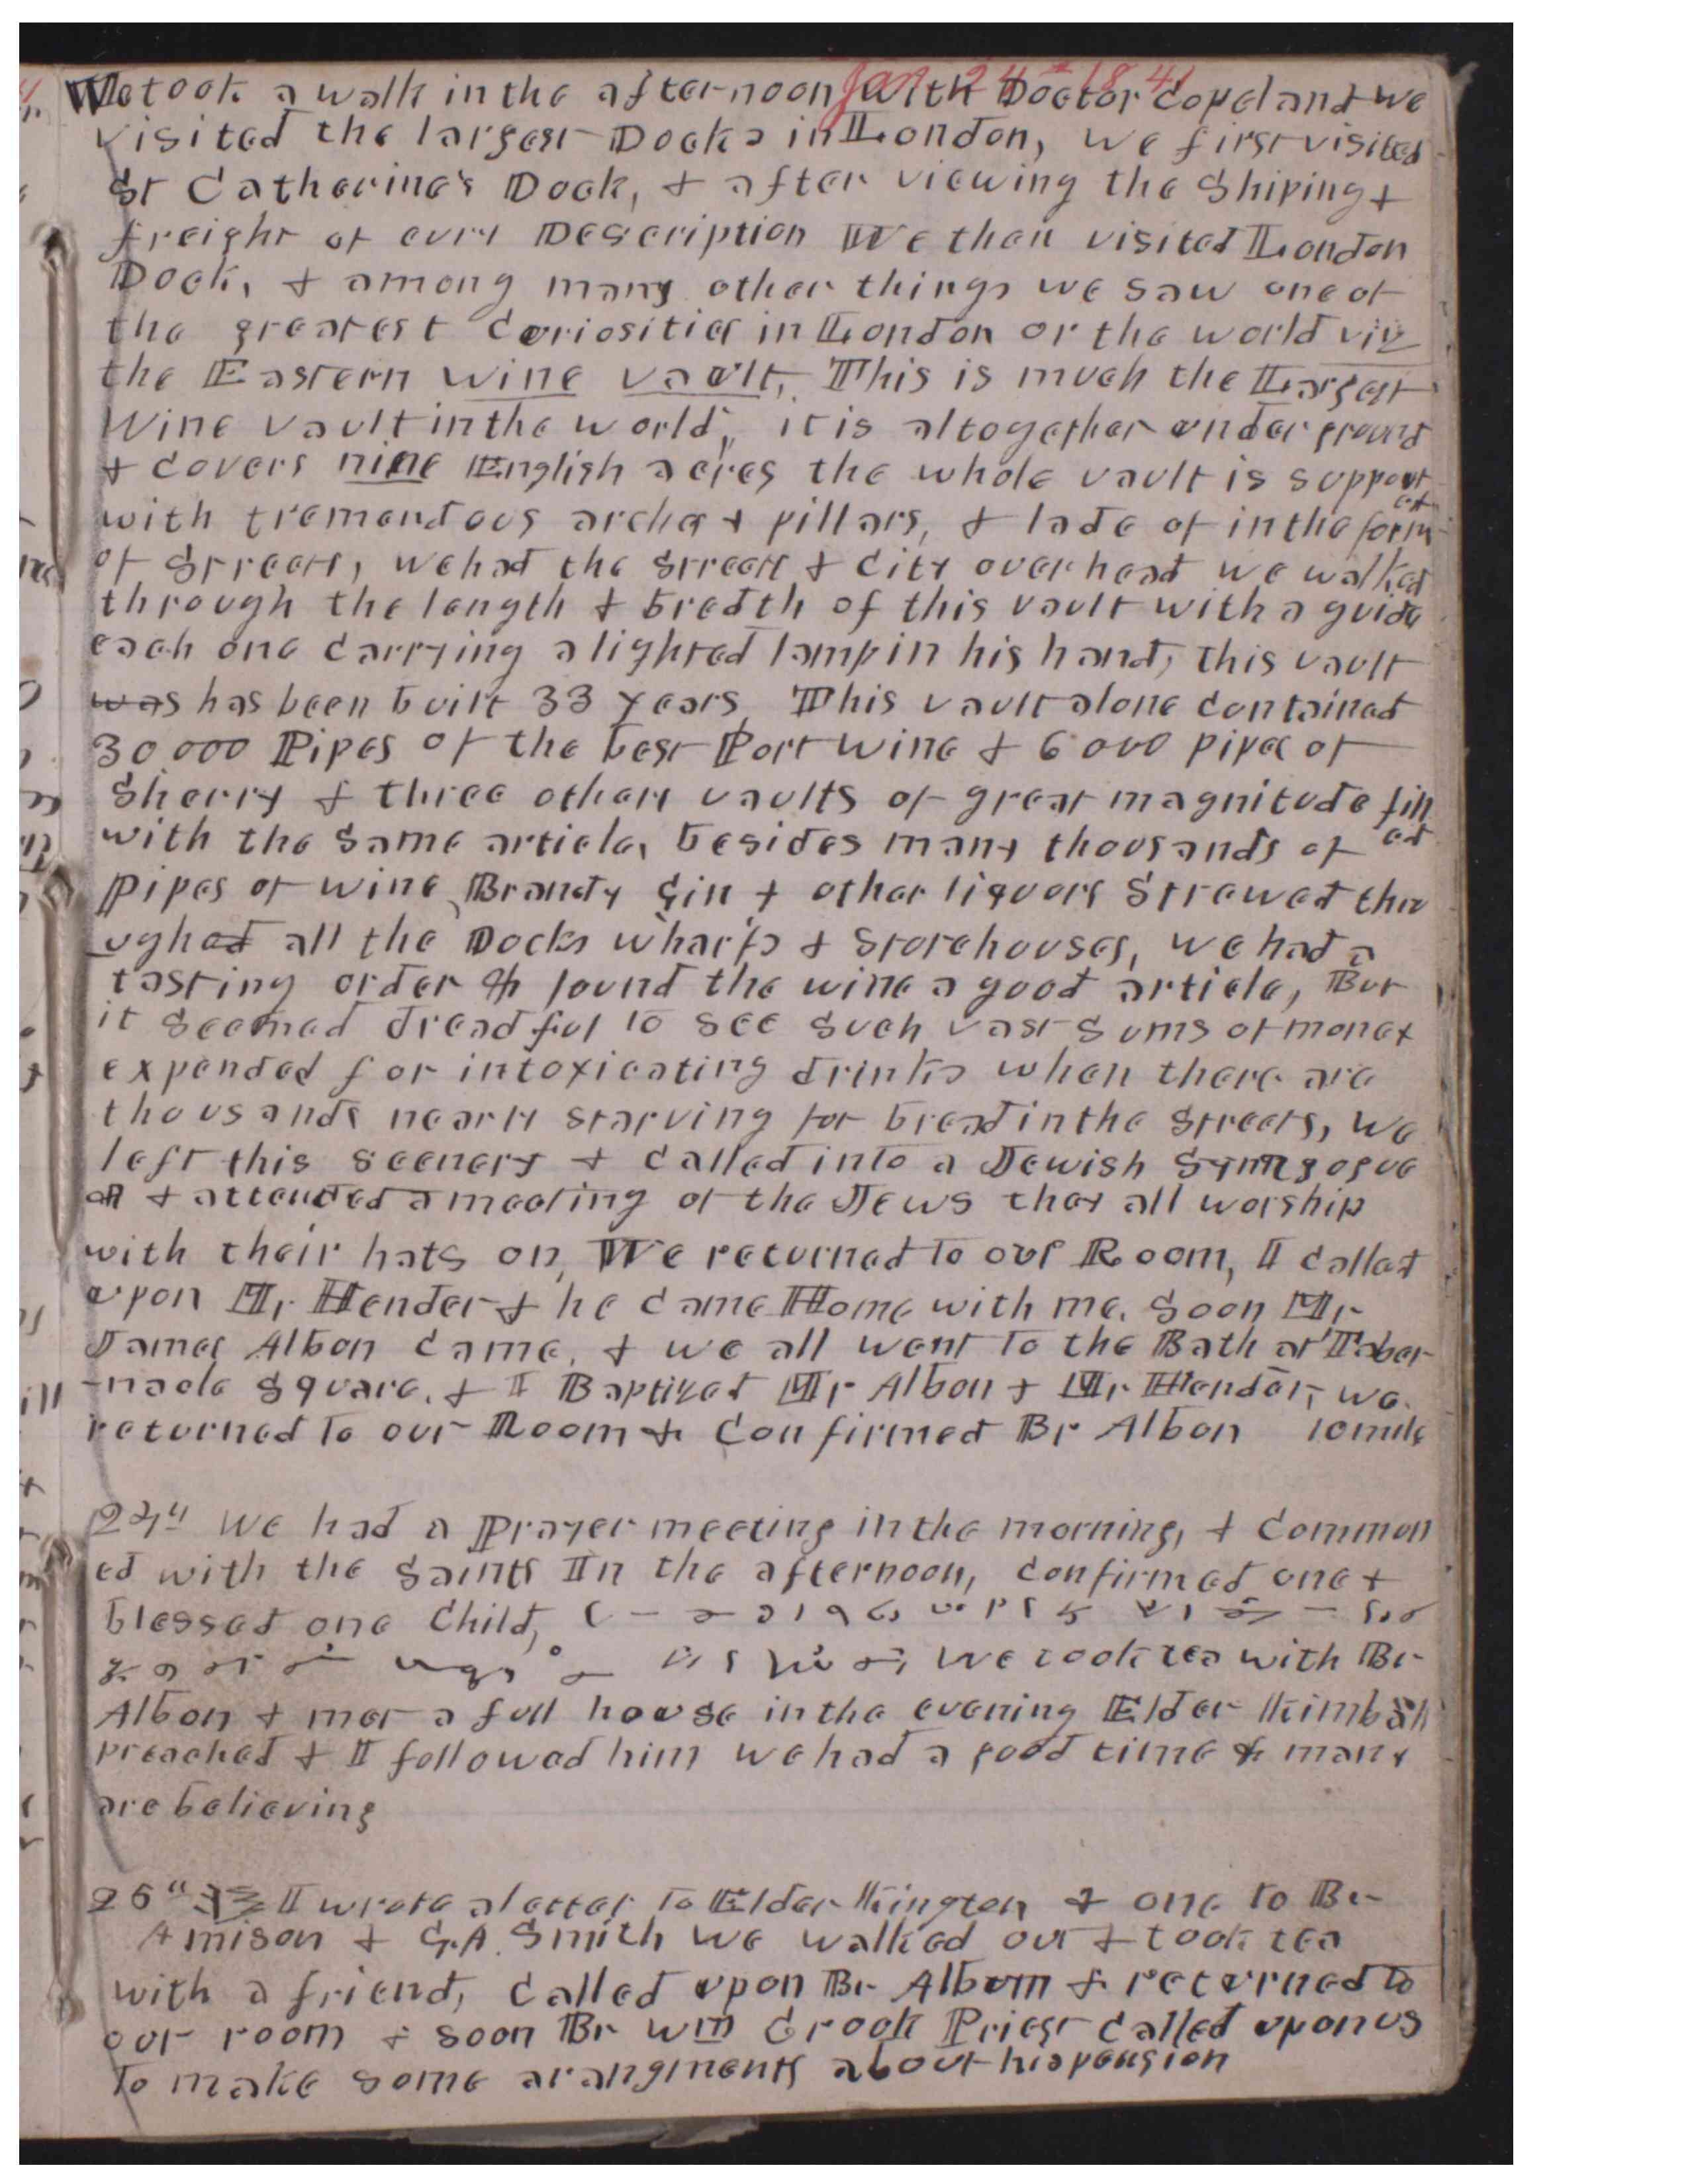 Jan 24th 1841
We took a walk in the afternoon with Doctor Copeland & we
visited the largest Docks in London, we first visited
St Catherine's Dock, & after viewing the Shiping &
freight of evry Description We then visited London
Dock, & among many other things we saw one of
the greatest Curiosities in London or the world viz
the Eastern wine vault, This is much the Largest
Wine vault in the world, it is altogether under ground
& Covers nine English acres the whole vault is support
ed
with tremendous arches & pillars, & lade of in the form
of Streets, we had the Streets & City over head we walked
through the length & bredth of this vault with a guide
each one Carrying a lighted lamp in his hand, this vault
was has been built 33 years, This vault alone Contained
30,000 Pipes of the best Port wine & 6000 pipes of
Sherry & three others vaults of great magnitude fill
ed
with the Same article, besides many thousands of
pipes of wine, Brandy Gin & other liquors Strewed thro
ughed all the Docks wharfs & Storehouses, we had a
tasting order & found the wine a good article, But
it Seemed dreadful to see such vast Sums of money
expended for intoxicating drinks when there are
thousands nearly starving for bread in the Streets, we
left this seenery & Called into a Jewish Synagogue
& attended a meeting of the Jews they all worship
with their hats on, We returned to our Room, I Called
upon Mr Hender & he Came Home with me. Soon Mr
James Albon Came, & we all went to the Bath at Taber-
-nacle Square, & I Baptized Mr Albon & Mr Hender, we
returned to our Room & Confirmed Br Albon 10 mile
24" We had a Prayer meeting in the morning, & Commun
ed with the Saints In the afternoon, Confirmed one &
blessed one Child,
We took tea with Br
Albon & met a full house in the evening Elder Kimball
preached & I followed him we had a good time & many
are believing
25" I wrote a letter to Elder Kington & one to Br
Amison & G.A. Smith we walked out & took tea
with a friend, Called upon Br Album & returned to
our room & soon Br Wm Crook Priest Called upon us
to make some arangments about his pension